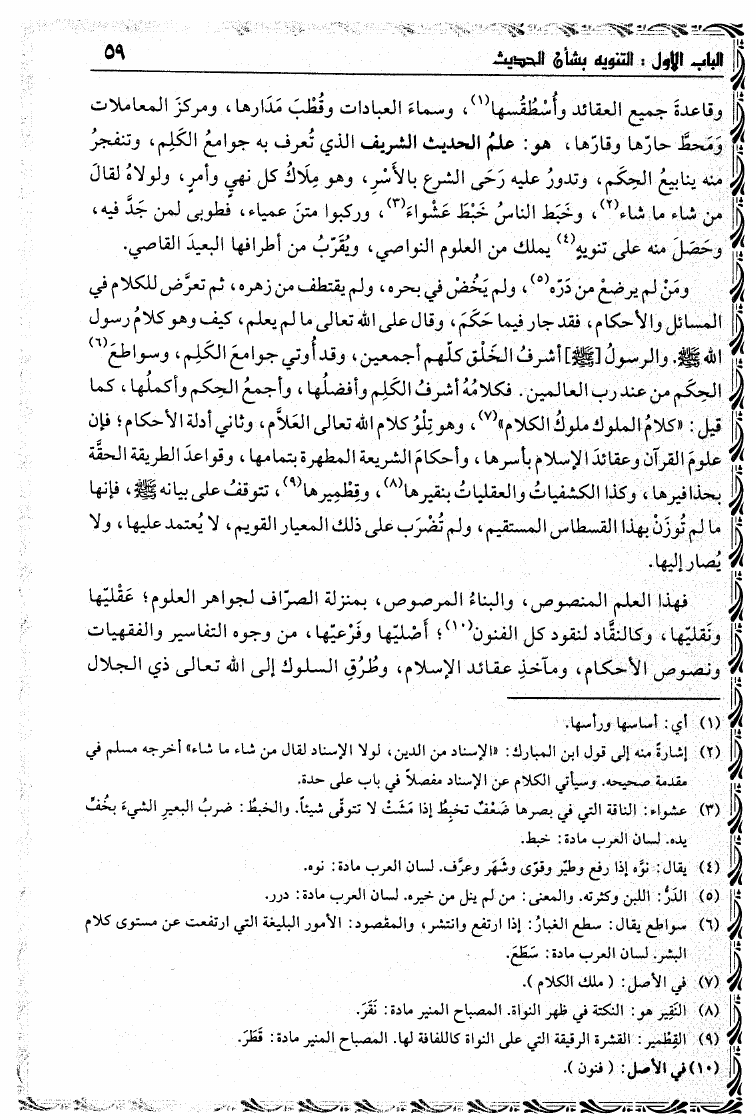 الباب الأول : التنويه بشأن الحديث ٥٩
وقاعدةَ جميع العقائد وأُسْطُقُسها(١)، وسماءَ العبادات وقُطْبَ مَدَارها، ومركزَ المعاملات
وَمَحطَّ حارّها وقارّها، هو: علمُ الحديث الشريف الذي تُعرف به جوامعُ الكَلِم، وتنفجرُ
منه ينابيعُ الحِكَم، وتدورُ عليه رَحَى الشرع بالأَسْرِ، وهو مِلَاكُ كل نهيٍ وأمرٍ، ولولاهُ لقالَ
من شاء ما شاء(٢)، وخَبَط الناسُ خَبْطَ عَشْواءَ(٣)، وركبوا متنَ عمياء، فطوبى لمن جَدَّ فيه،
وحَصَلَ منه على تنويهٍ(٤) يملك من العلوم النواصي، ويُقَرّبُ من أطرافها البعيدَ القاصي.
ومَنْ لم يرضعْ من دَرّه(٥)، ولم يَخُضْ في بحره، ولم يقتطف من زهره، ثم تعرَّض للكلام في
المسائل والأحكام، فقد جار فيما حَكَمَ، وقال على الله تعالى ما لم يعلم، كيف وهو كلامُ رسول
الله ﷺ. والرسولُ [ﷺ] أشرفُ الخَلْق كلّهم أجمعين، وقد أُوتي جوامعَ الكَلِم، وسواطعَ(٦)
الحِكَم من عند رب العالمين. فكلامُهُ أشرفُ الكَلِم وأفضلُها، وأجمعُ الحِكم وأكملُها، كما
قيل: «كلامُ الملوك ملوكُ الكلام»(٧)، وهو تِلْوُ كلام الله تعالى العَلاَّم، وثاني أدلة الأحكام؛ فإن
علومَ القرآن وعقائدَ الإسلام بأسرها، وأحكامَ الشريعة المطهرة بتمامها، وقواعدَ الطريقة الحقَّة
بحذافيرها، وكذا الكشفياتُ والعقلياتُ بنقيرها(٨)، وقِطْمِيرها(٩)، تتوقفُ على بيانه ﷺ، فإنها
ما لم تُوزَنْ بهذا القسطاس المستقيم، ولم تُضْرَب على ذلك المعيار القويم، لا يُعتمد عليها، ولا
يُصار إليها.
فهذا العلم المنصوص، والبناءُ المرصوص، بمنزلة الصرّاف لجواهر العلوم؛ عَقْليّها
ونَقليّها، وكالنقَّاد لنقود كل الفنون(١٠)؛ أَصْليّها وفَرْعيّها، من وجوه التفاسير والفقهيات
ونصوص الأحكام، ومآخذِ عقائد الإسلام، وطُرُقِ السلوك إلى الله تعالى ذي الجلال
(١) أي: أساسها ورأسها.
(٢) إشارةً منه إلى قول ابن المبارك: «الإسناد من الدين، لولا الإسناد لقال من شاء ما شاء» أخرجه مسلم في
مقدمة صحيحه. وسيأتي الكلام عن الإسناد مفصلاً في باب على حدة.
(٣) عشواء: الناقة التي في بصرها ضَعْفٌ تخبِطُ إذا مَشَتْ لا تتوقّى شيئاً. والخبطُ: ضربُ البعيرِ الشيءَ بخُفِّ
يده. لسان العرب مادة: خبط.
(٤) يقال: نوَّه إذا رفع وطيّر وقوّى وشَهَر وعرَّف. لسان العرب مادة: نوه.
(٥) الدَّرُّ: اللبن وكثرته. والمعنى: من لم ينل من خيره. لسان العرب مادة: درر.
(٦) سواطع يقال: سطع الغبارُ: إذا ارتفع وانتشر، والمقصود: الأمور البليغة التي ارتفعت عن مستوى كلام
البشر. لسان العرب مادة: سَطَعَ.
(٧) في الأصل: ( ملك الكلام ).
(٨) النَقِير هو: النكتة في ظهر النواة. المصباح المنير مادة: نَقَرَ.
(٩) القِطْمير: القشرة الرقيقة التي على النواة كاللفافة لها. المصباح المنير مادة: قَطَرَ.
(١٠) في الأصل: ( فنون ).